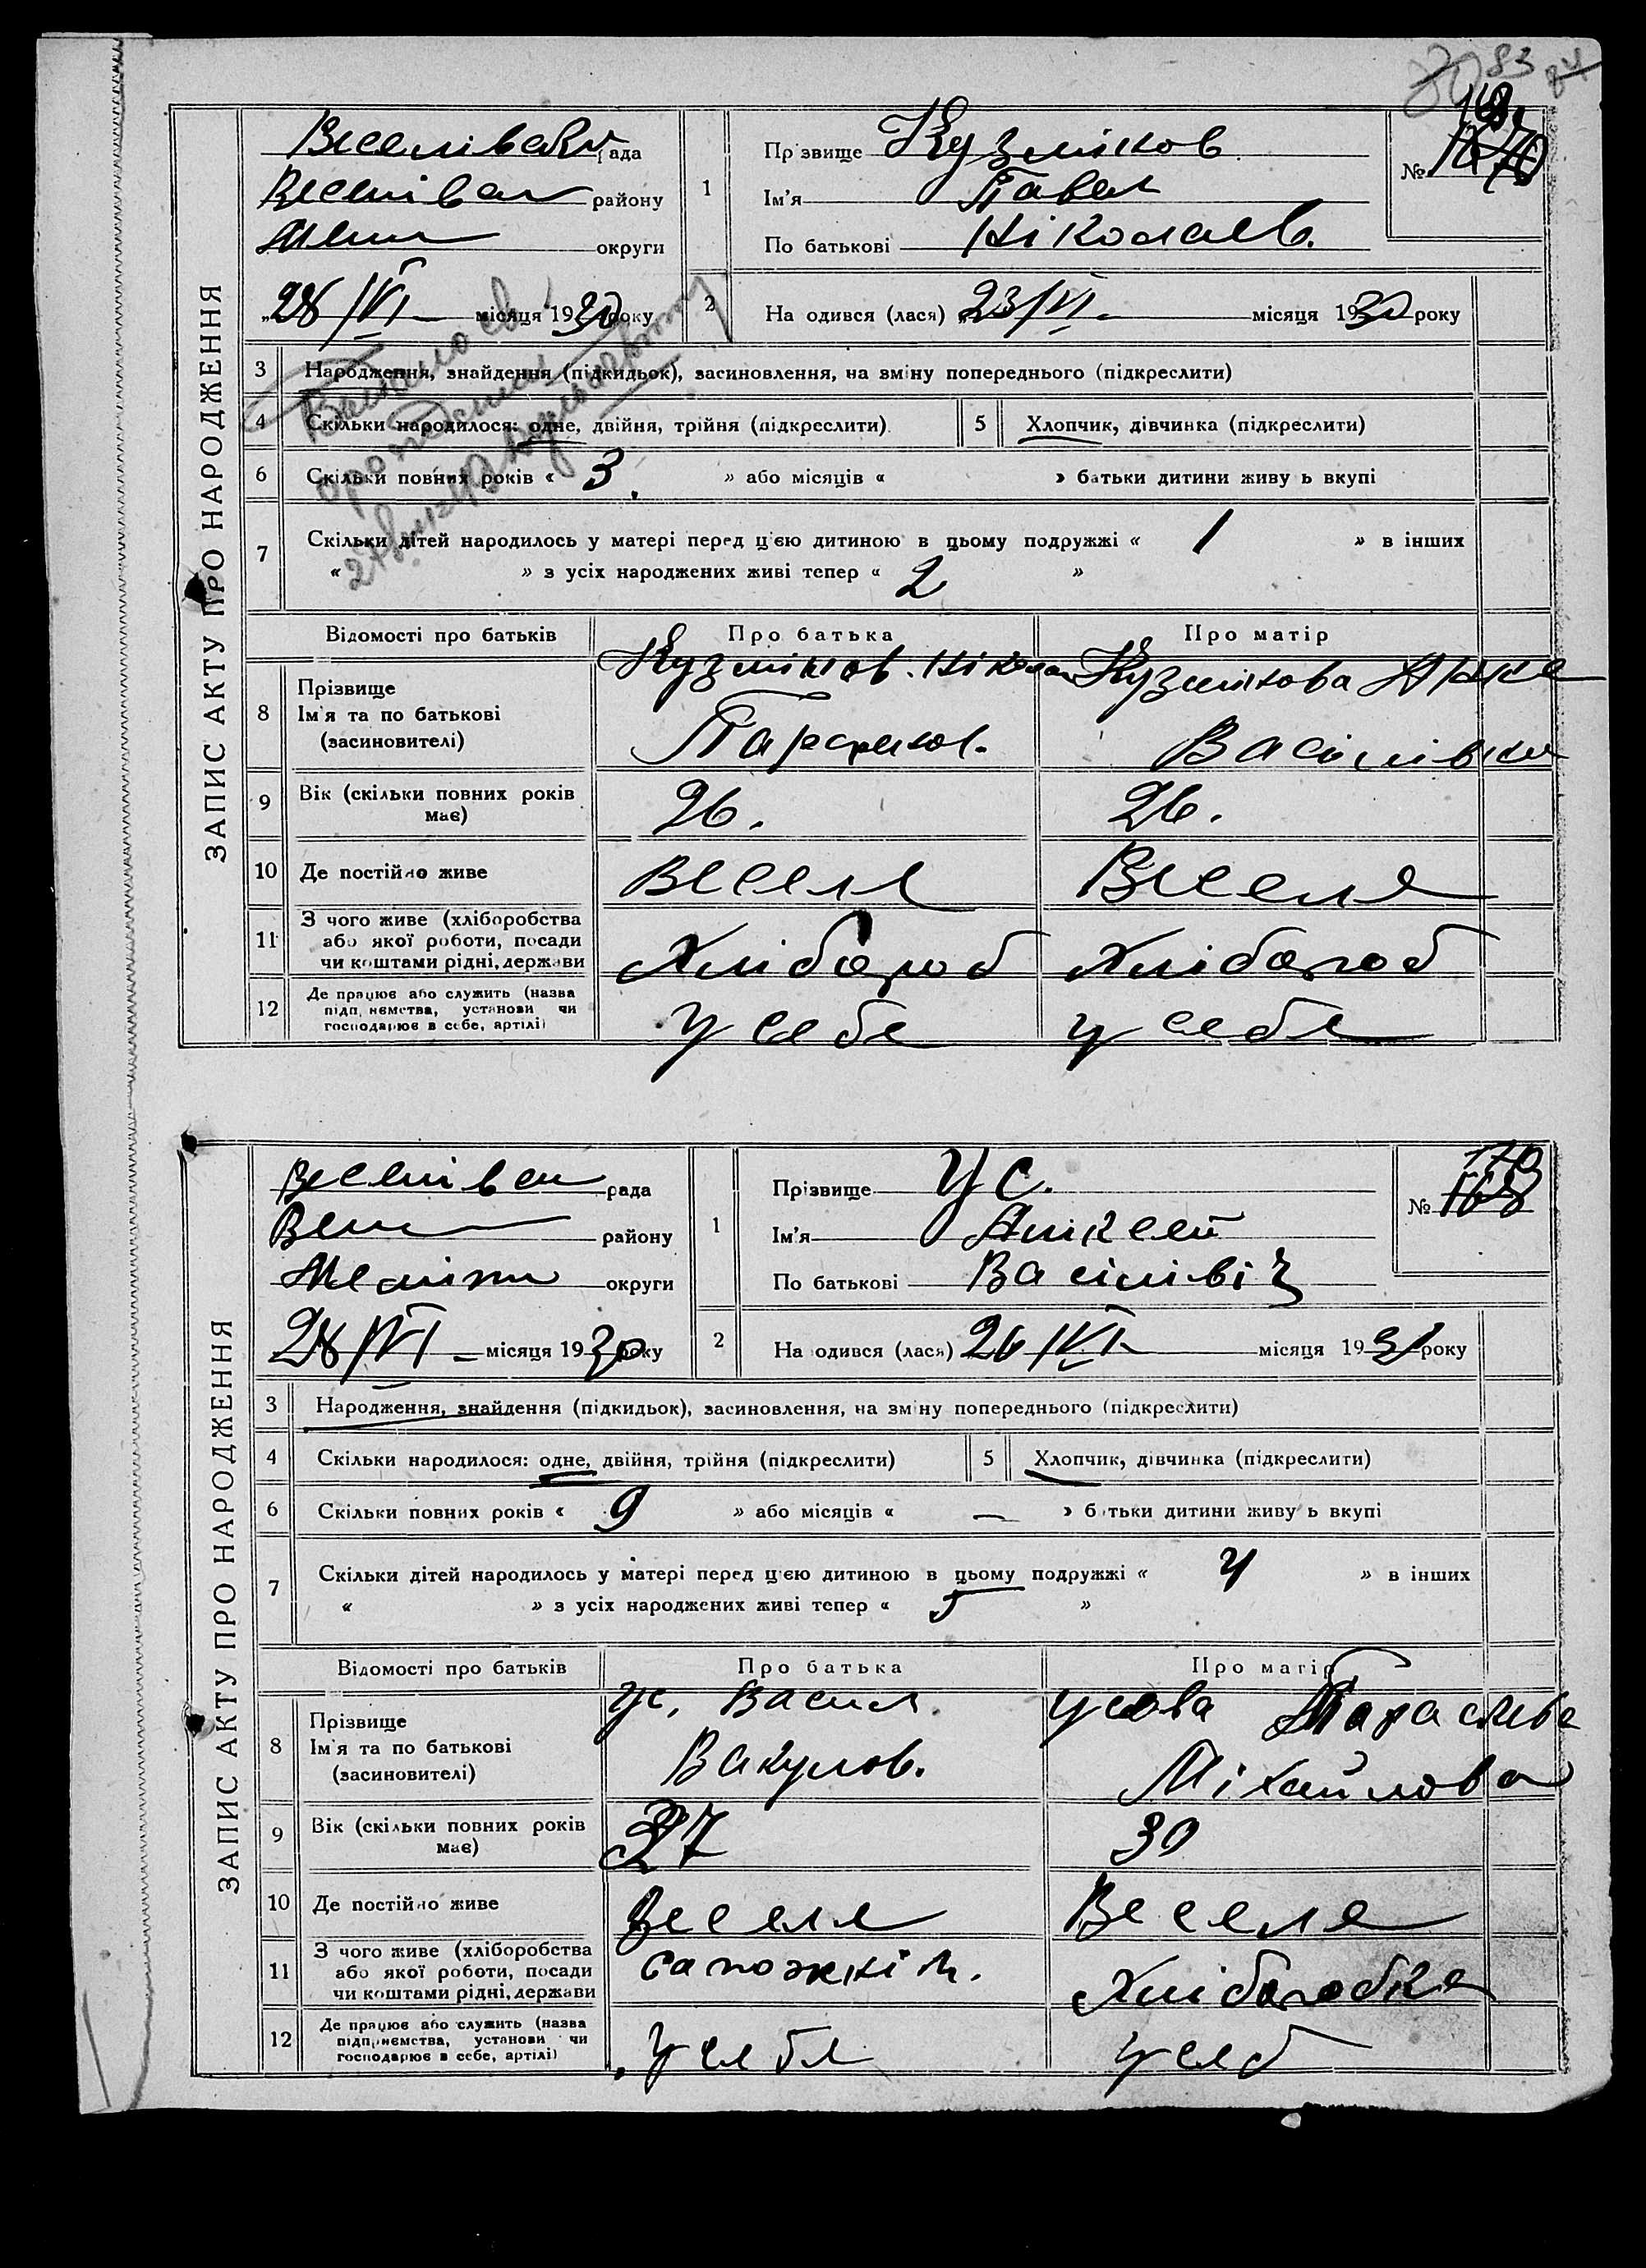 83
84
ЗАПИС АКТУ ПРО НАРОДЖЕННЯ
рада
району
Мелі округи
„28/VI місяця 1930 року
1
Прізвище Кузміков
Ім'я Павел
По батькові Ніколаев.
№
2
Народився (лася) „23/VI місяця 1930 року
3 Народження, знайдення (підкидьок), засиновлення, на зміну попереднього (підкреслити)
4 Скільки народилося: одне, двійня, трійня (підкреслити).
5 Хлопчик, дівчинка (підкреслити)
6 Скільки повних років « 3. » або місяців « » батьки дитини живуть вкупі
7 Скільки дітей народилось у матері перед цією дитиною в цьому подружжі « 1 » в інших
« » з усіх народжених живі тепер « 2 »
Відомості про батьків Про батька Про матір
8 Прізвище
Ім'я та по батькові
(засиновителі)
Кузміков. Ніколай
Кузмікова Анна
9 Вік (скільки повних років має) 26. 26.
10 Де постійно живе Веселе Веселе
11 З чого живе (хліборобства
або якої роботи, посади
чи коштами рідні, держави
Хлібороб Хлібороб
12 Де працює або служить (назва
підприємства, установи чи
господарює в себе, артілі)
у себе у себе
ЗАПИС АКТУ ПРО НАРОДЖЕННЯ
рада
району
Меліт округи
28/VI місяця 1930 року
1
Прізвище Ус.
Ім'я Аліксей
По батькові Васілівіч
№
2
Народився (лася) 26/VI місяця 19 року
3 Народження, знайдення (підкидьок), засиновлення, на зміну попереднього (підкреслити)
4 Скільки народилося: одне, двійня, трійня (підкреслити)
5 Хлопчик, дівчинка (підкреслити)
6 Скільки повних років « 9 » або місяців « — » батьки дитини живуть вкупі
7 Скільки дітей народилось у матері перед цією дитиною в цьому подружжі « 4 » в інших
« » з усіх народжених живі тепер « 5 »
Відомості про батьків Про батька Про матір
8 Прізвище
Ім'я та по батькові
(засиновителі)
Ус, Васил Усова
Вакулов. Міхайлова
9 Вік (скільки повних років має) 37 30
10 Де постійно живе Веселе Веселе
11 З чого живе (хліборобства
або якої роботи, посади
чи коштами рідні, держави
сапожнік. Хліборобка
12 Де працює або служить (назва
підприємства, установи чи
господарює в себе, артілі)
у себе у себ